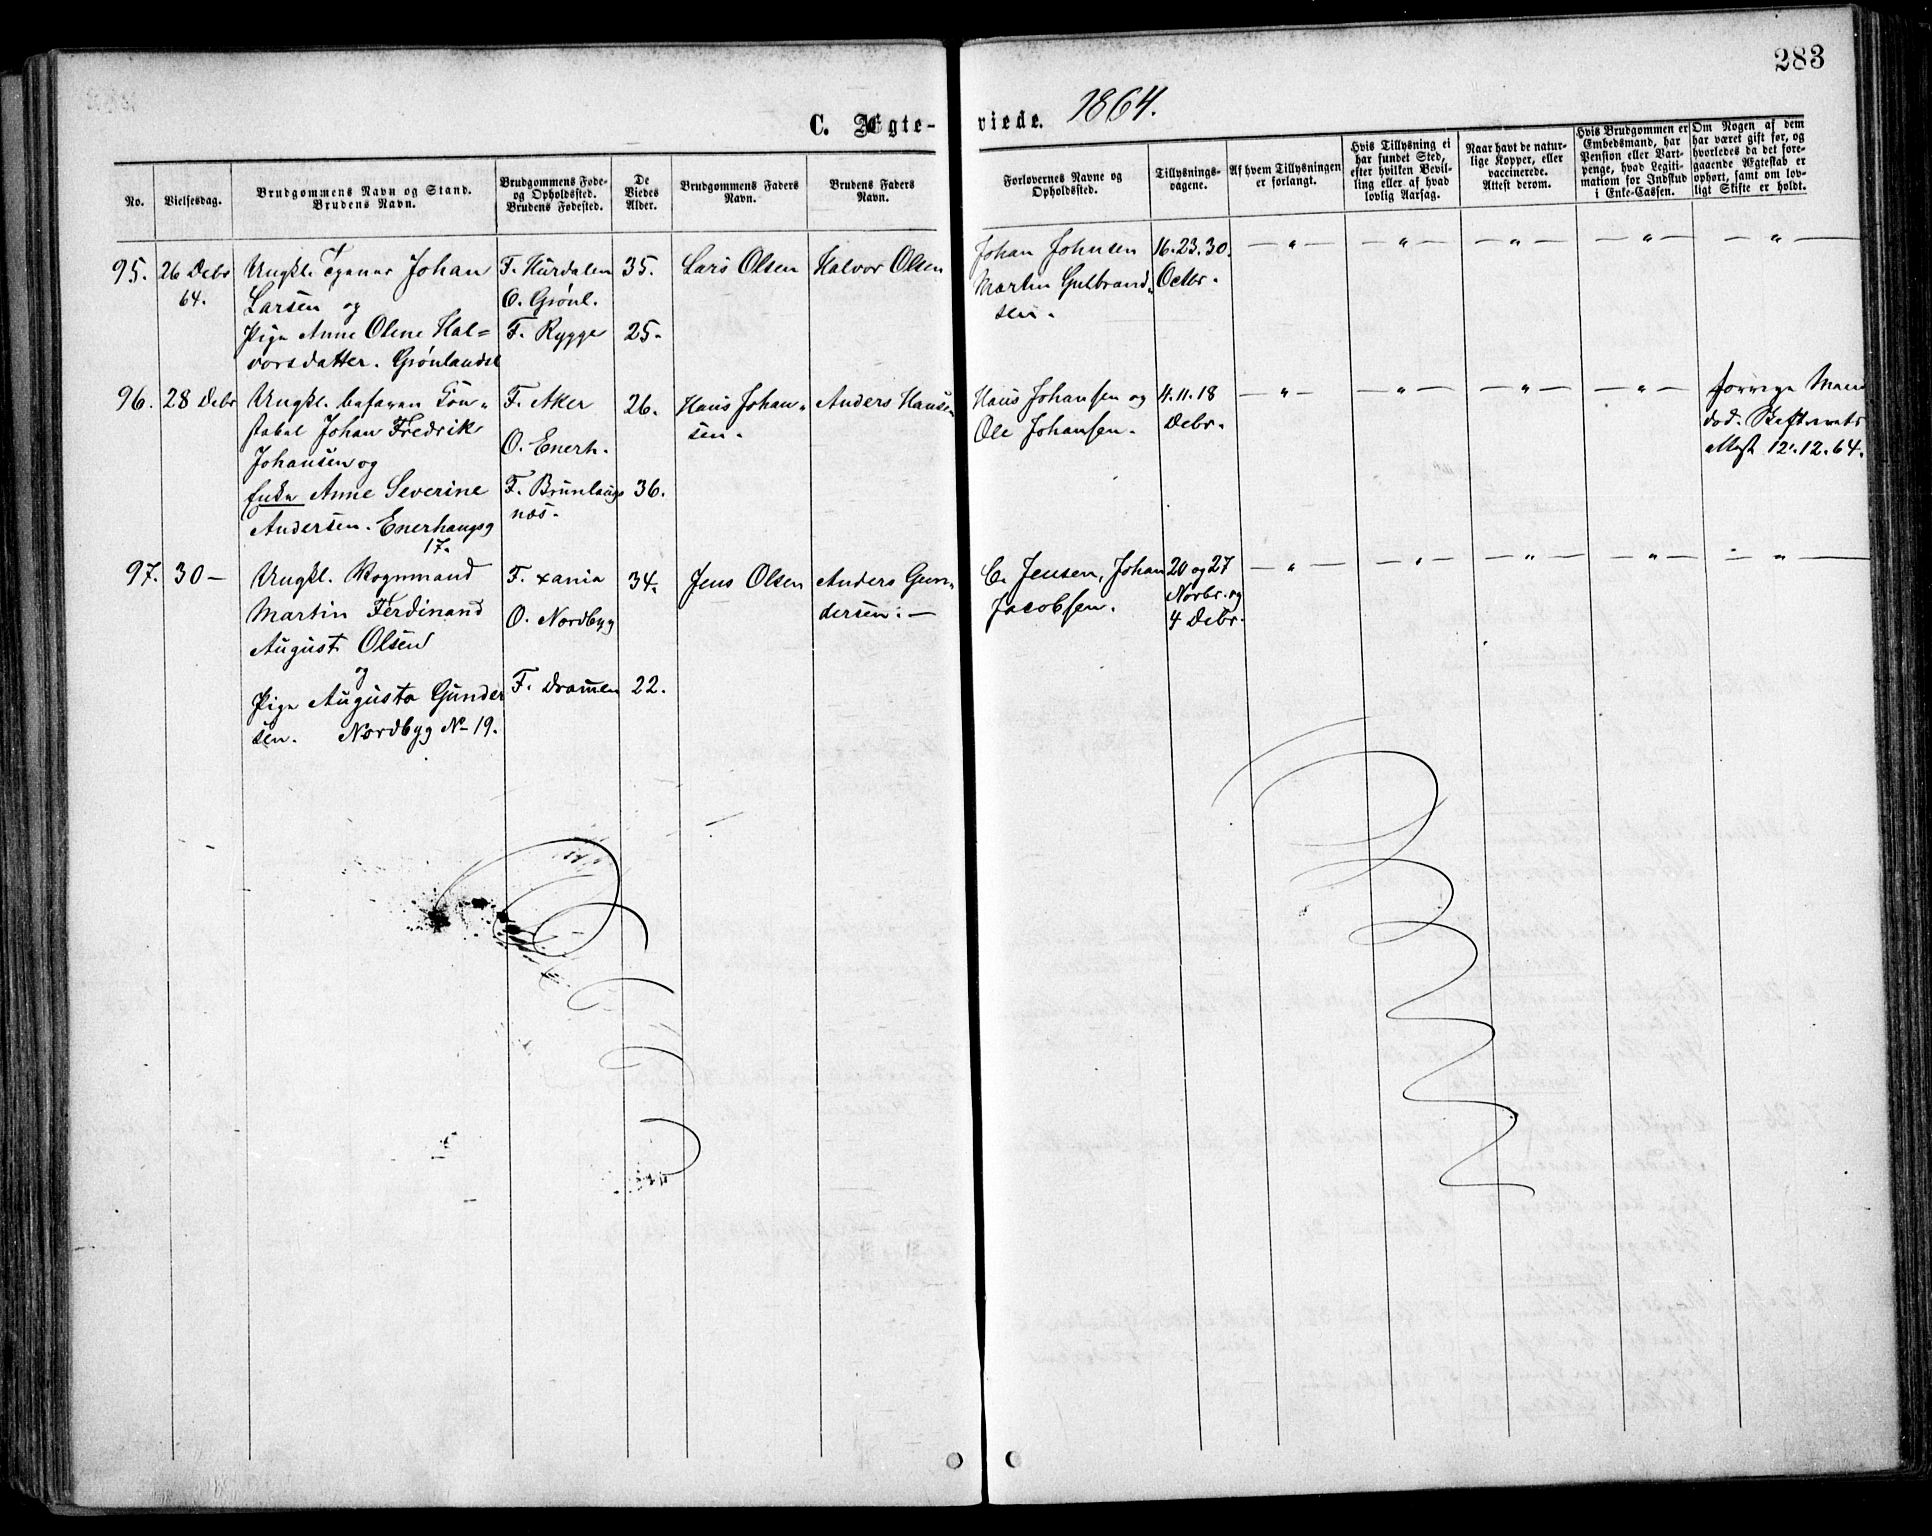 283
C. Ægte-
viede.
1864.
No.
Vielsesdag.
Brudgommens Navn og Stand.
Brudens Navn.
Brudgommens Føde-
og Opholdssted.
Brudens Fødested.
De
Viedes
Alder.
Brudgommens Faders
Navn.
Brudens Faders
Navn.
Forlovernes Navne og
Opholdssted.
Tillysnings-
dagene.
Af hvem Tillysningen
er forlangt.
Hvis Tillysning ei
har fundet Sted,
efter hvilken Bevil-
ling eller af hvad
lovlig Aarsag.
Naar havt de natur-
lige Kopper, eller
vaccinerede.
Attest derom.
Hvis Brudgommen er
Embedsmand, har
Pension eller Vart-
penge, hvad Legiti-
mation for Indskud
i Enke-Cassen.
Om Nogen af dem
har været gift før, og
hvorledes da det fore-
gaaende Ægteskab er
ophørt, samt om lov-
ligt Skifte er holdt.
95.
26 Debr
64.
Ungkl. Johan
Larsen og
Pige Anne Oline Hal=
vorsdatter. Grønlandsl
F. Hurdalen
O. Grönl.
F. Rygge
35.
25.
Lars Olsen
Halvor Olsen
Johan Johnsen
Martin Gulbrand„
sen.
16. 23. 30.
Octbr.
— „ —
— „ —
— „ —
— „ —
— „ —
96.
28 Debr
Ungkl. befaren Kon„
stabel Johan Fredrik
Johansen og
Enke Anne Severine
Andersen. Enerhaugsg
17.
F. Aker
O. Enerh.
F. Brunlaugs
næs.
26.
36.
Hans Johan„
sen.
Anders Hansen
Hans Johansen og
Ole Johansen.
4. 11. 18
Debr.
— „ —
— „ —
— „ —
— „ —
forrige Mand
død. Skifterets
Attest 12. 12. 64.
97.
30 —
Ungkl. Vognmand
Martin Ferdinand
August Olsen
og
Pige Augusta Gunder
sen. Nordbyg No 19.
F. xania
O. Nordbyg
F. Dramen
34.
22.
Jens Olsen
Anders Gun„
dersen. —
C. Jensen, Johan
Jacobsen.
20 og 27
Novbr. og
4 Debr.
— „ —
— „ —
— „ —
— „ —
— „ —